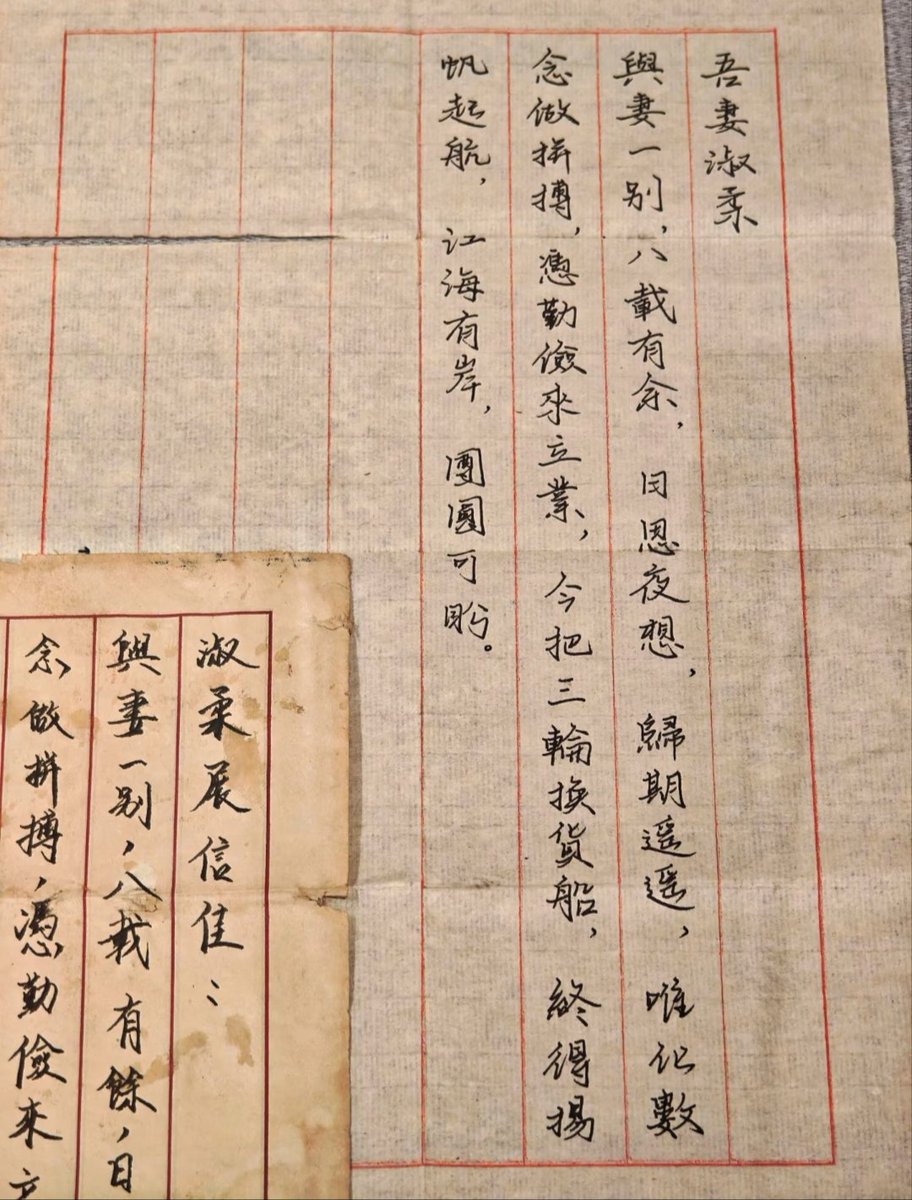 吾妻淑柔
與妻一别，八載有余，日思夜想，歸期遥遥，唯化數
念做拼搏，憑勤儉來立業，今把三輪換货船，終得揚
帆起航，江海有岸，團圓可盼。
淑柔展信佳：
與妻一别，八載有餘，日
念做拼搏，憑勤儉來立